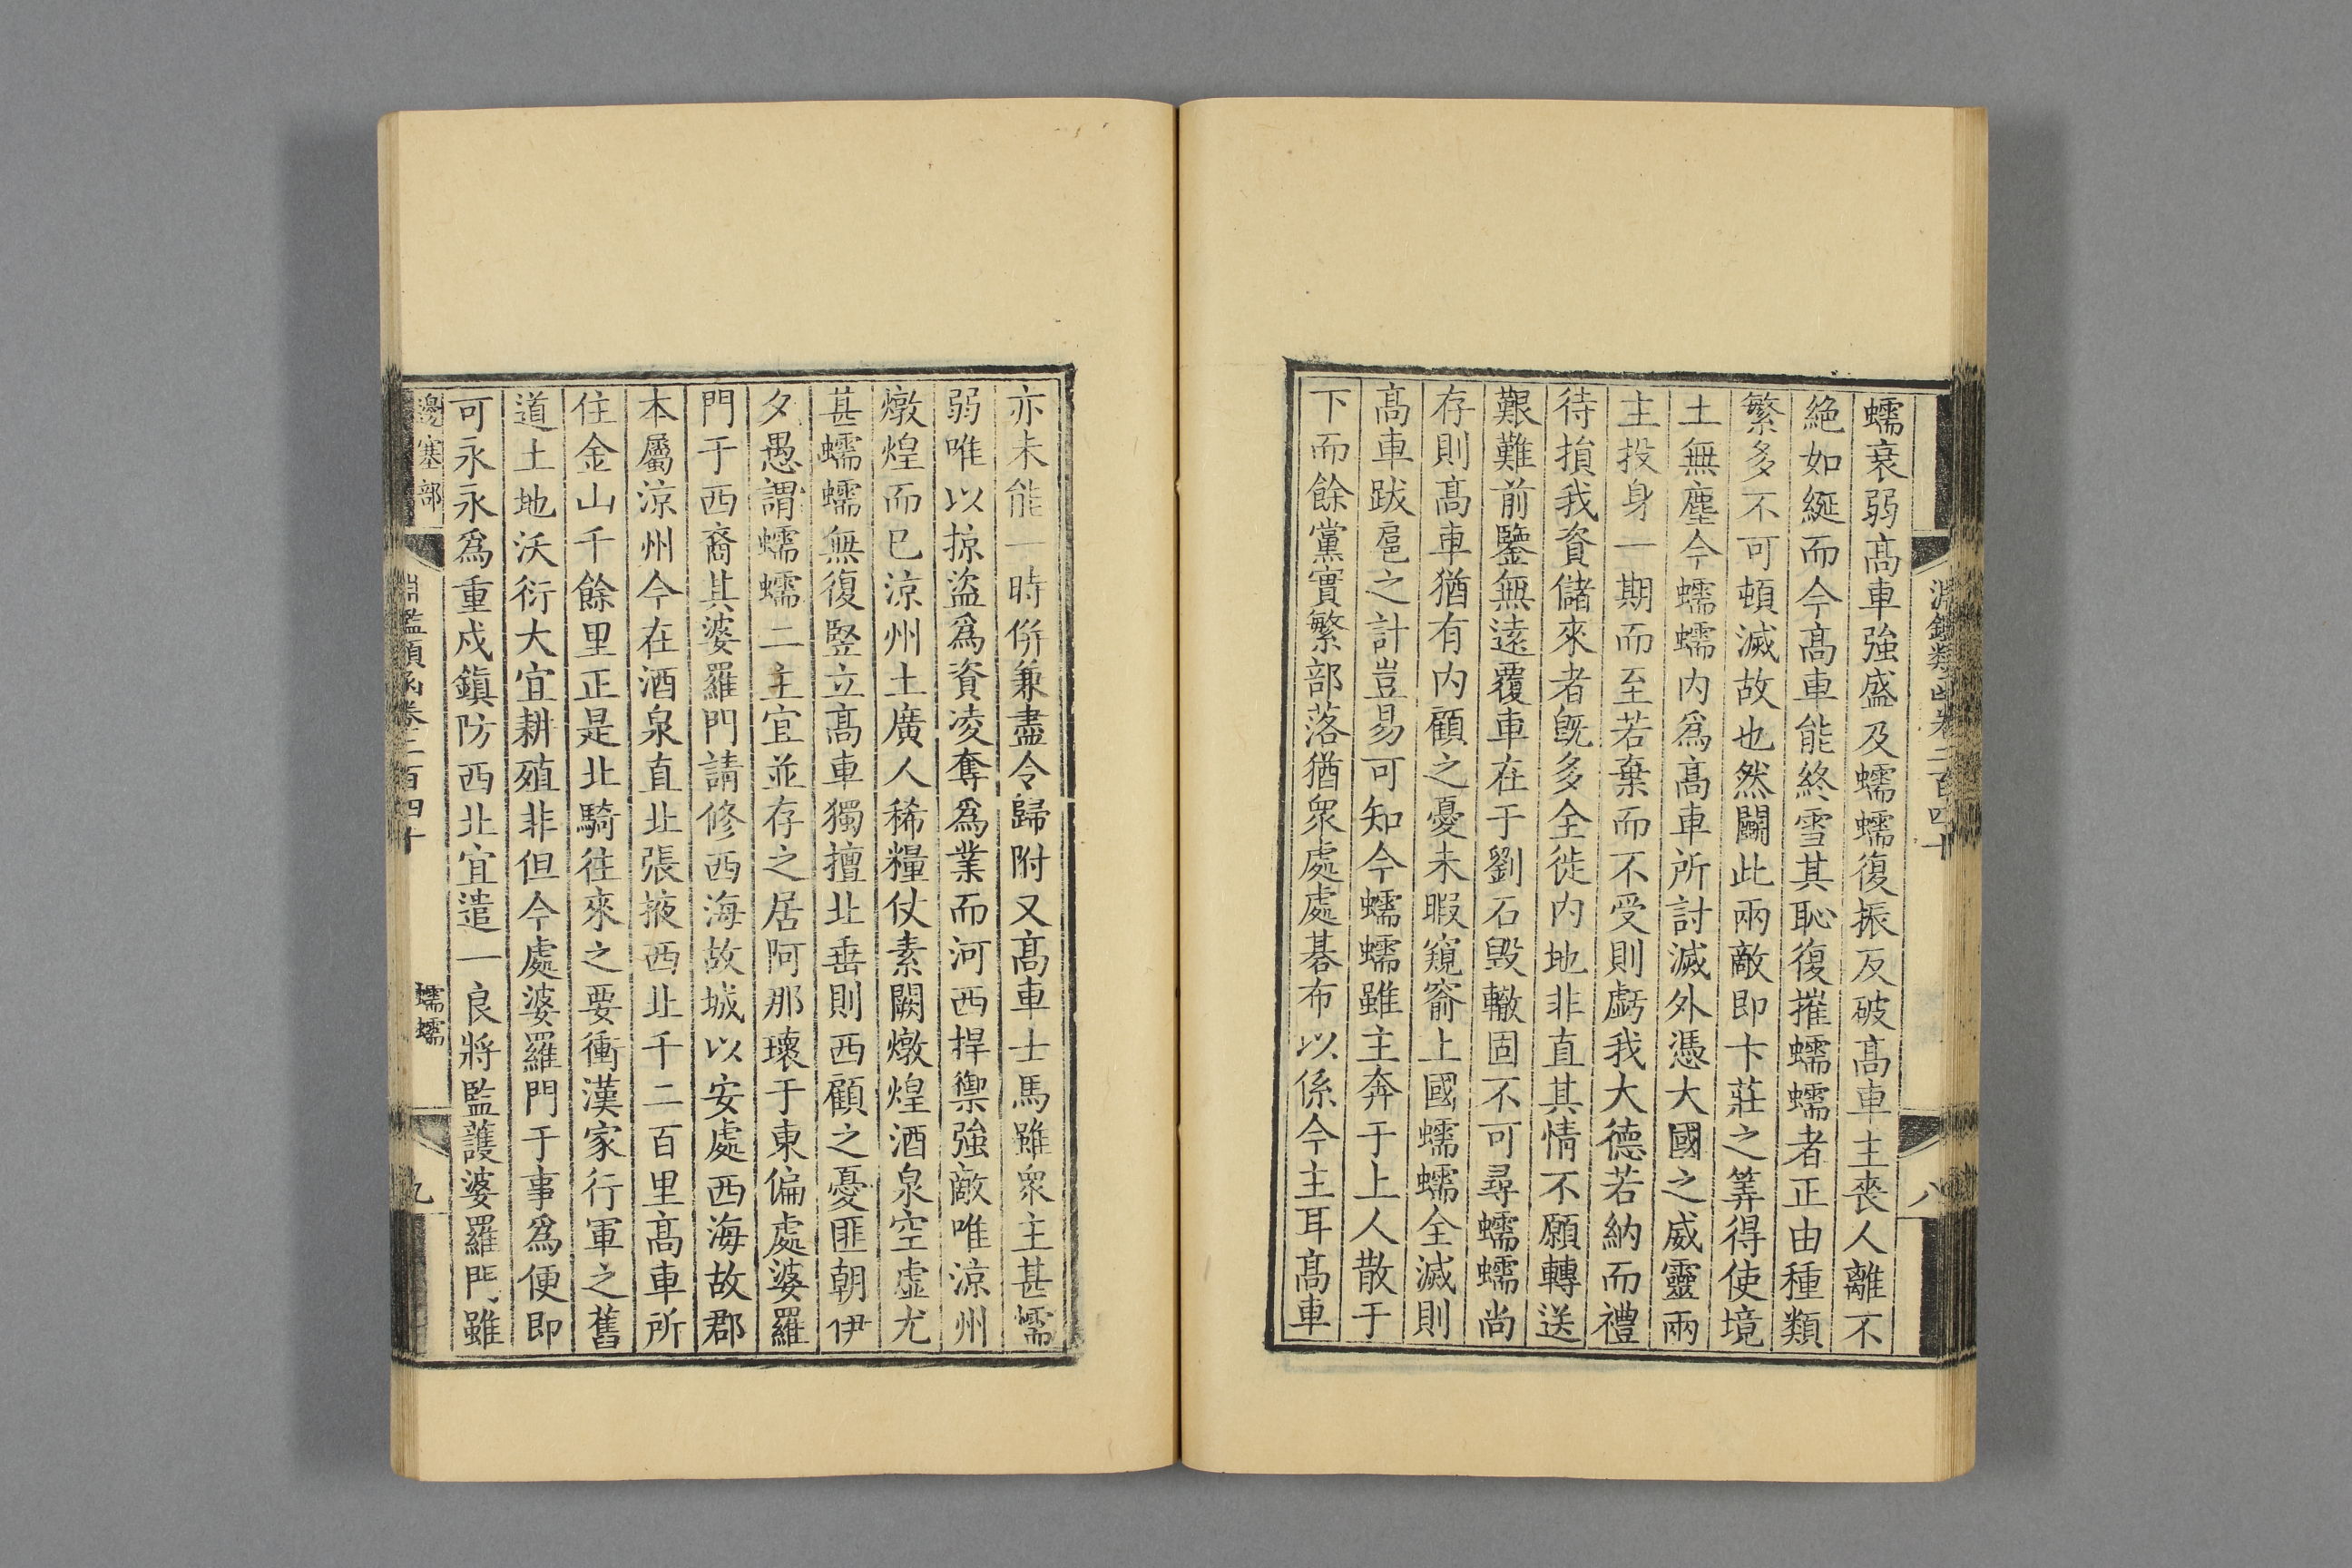 淵鑑類函卷二百四十
八
蠕衰弱高車強盛及蠕蠕復振反破高車主喪人離不
絕如綖而今高車能終雪其恥復摧蠕蠕者正由種類
繁多不可頓滅故也然鬭此兩敵即卞莊之筭得使境
土無塵今蠕蠕內爲高車所討滅外憑大國之威靈兩
主投身一期而至若棄而不受則虧我大德若納而禮
待損我資儲來者旣多全徙內地非直其情不願轉送
艱難前鑒無遠覆車在于劉石毀轍固不可尋蠕蠕尚
存則高車猶有內顧之憂未暇窺窬上國蠕蠕全滅則
高車跋扈之計豈易可知今蠕蠕雖主奔于上人散于
下而餘黨實繁部落猶衆處處棊布以係今主耳高車
亦未能一時併兼盡令歸附又高車士馬雖衆主甚懦
弱唯以掠盜爲資凌奪爲業而河西捍禦強敵唯涼州
燉煌而已涼州土廣人稀糧仗素闕燉煌酒泉空虛尤
甚蠕蠕無復豎立高車獨擅北垂則西顧之憂匪朝伊
夕愚謂蠕蠕二主宜並存之居阿那瓌于東偏處婆羅
門于西裔其婆羅門請修西海故城以安處西海故郡
本屬涼州今在酒泉直北張掖西北千二百里高車所
住金山千餘里正是北騎往來之要衝漢家行軍之舊
道土地沃衍大宜耕殖非但今處婆羅門于事爲便即
可永永爲重戍鎮防西北宜遣一良將監護婆羅門雖
邊塞部
淵鑑類函卷二百四十
蠕蠕
九